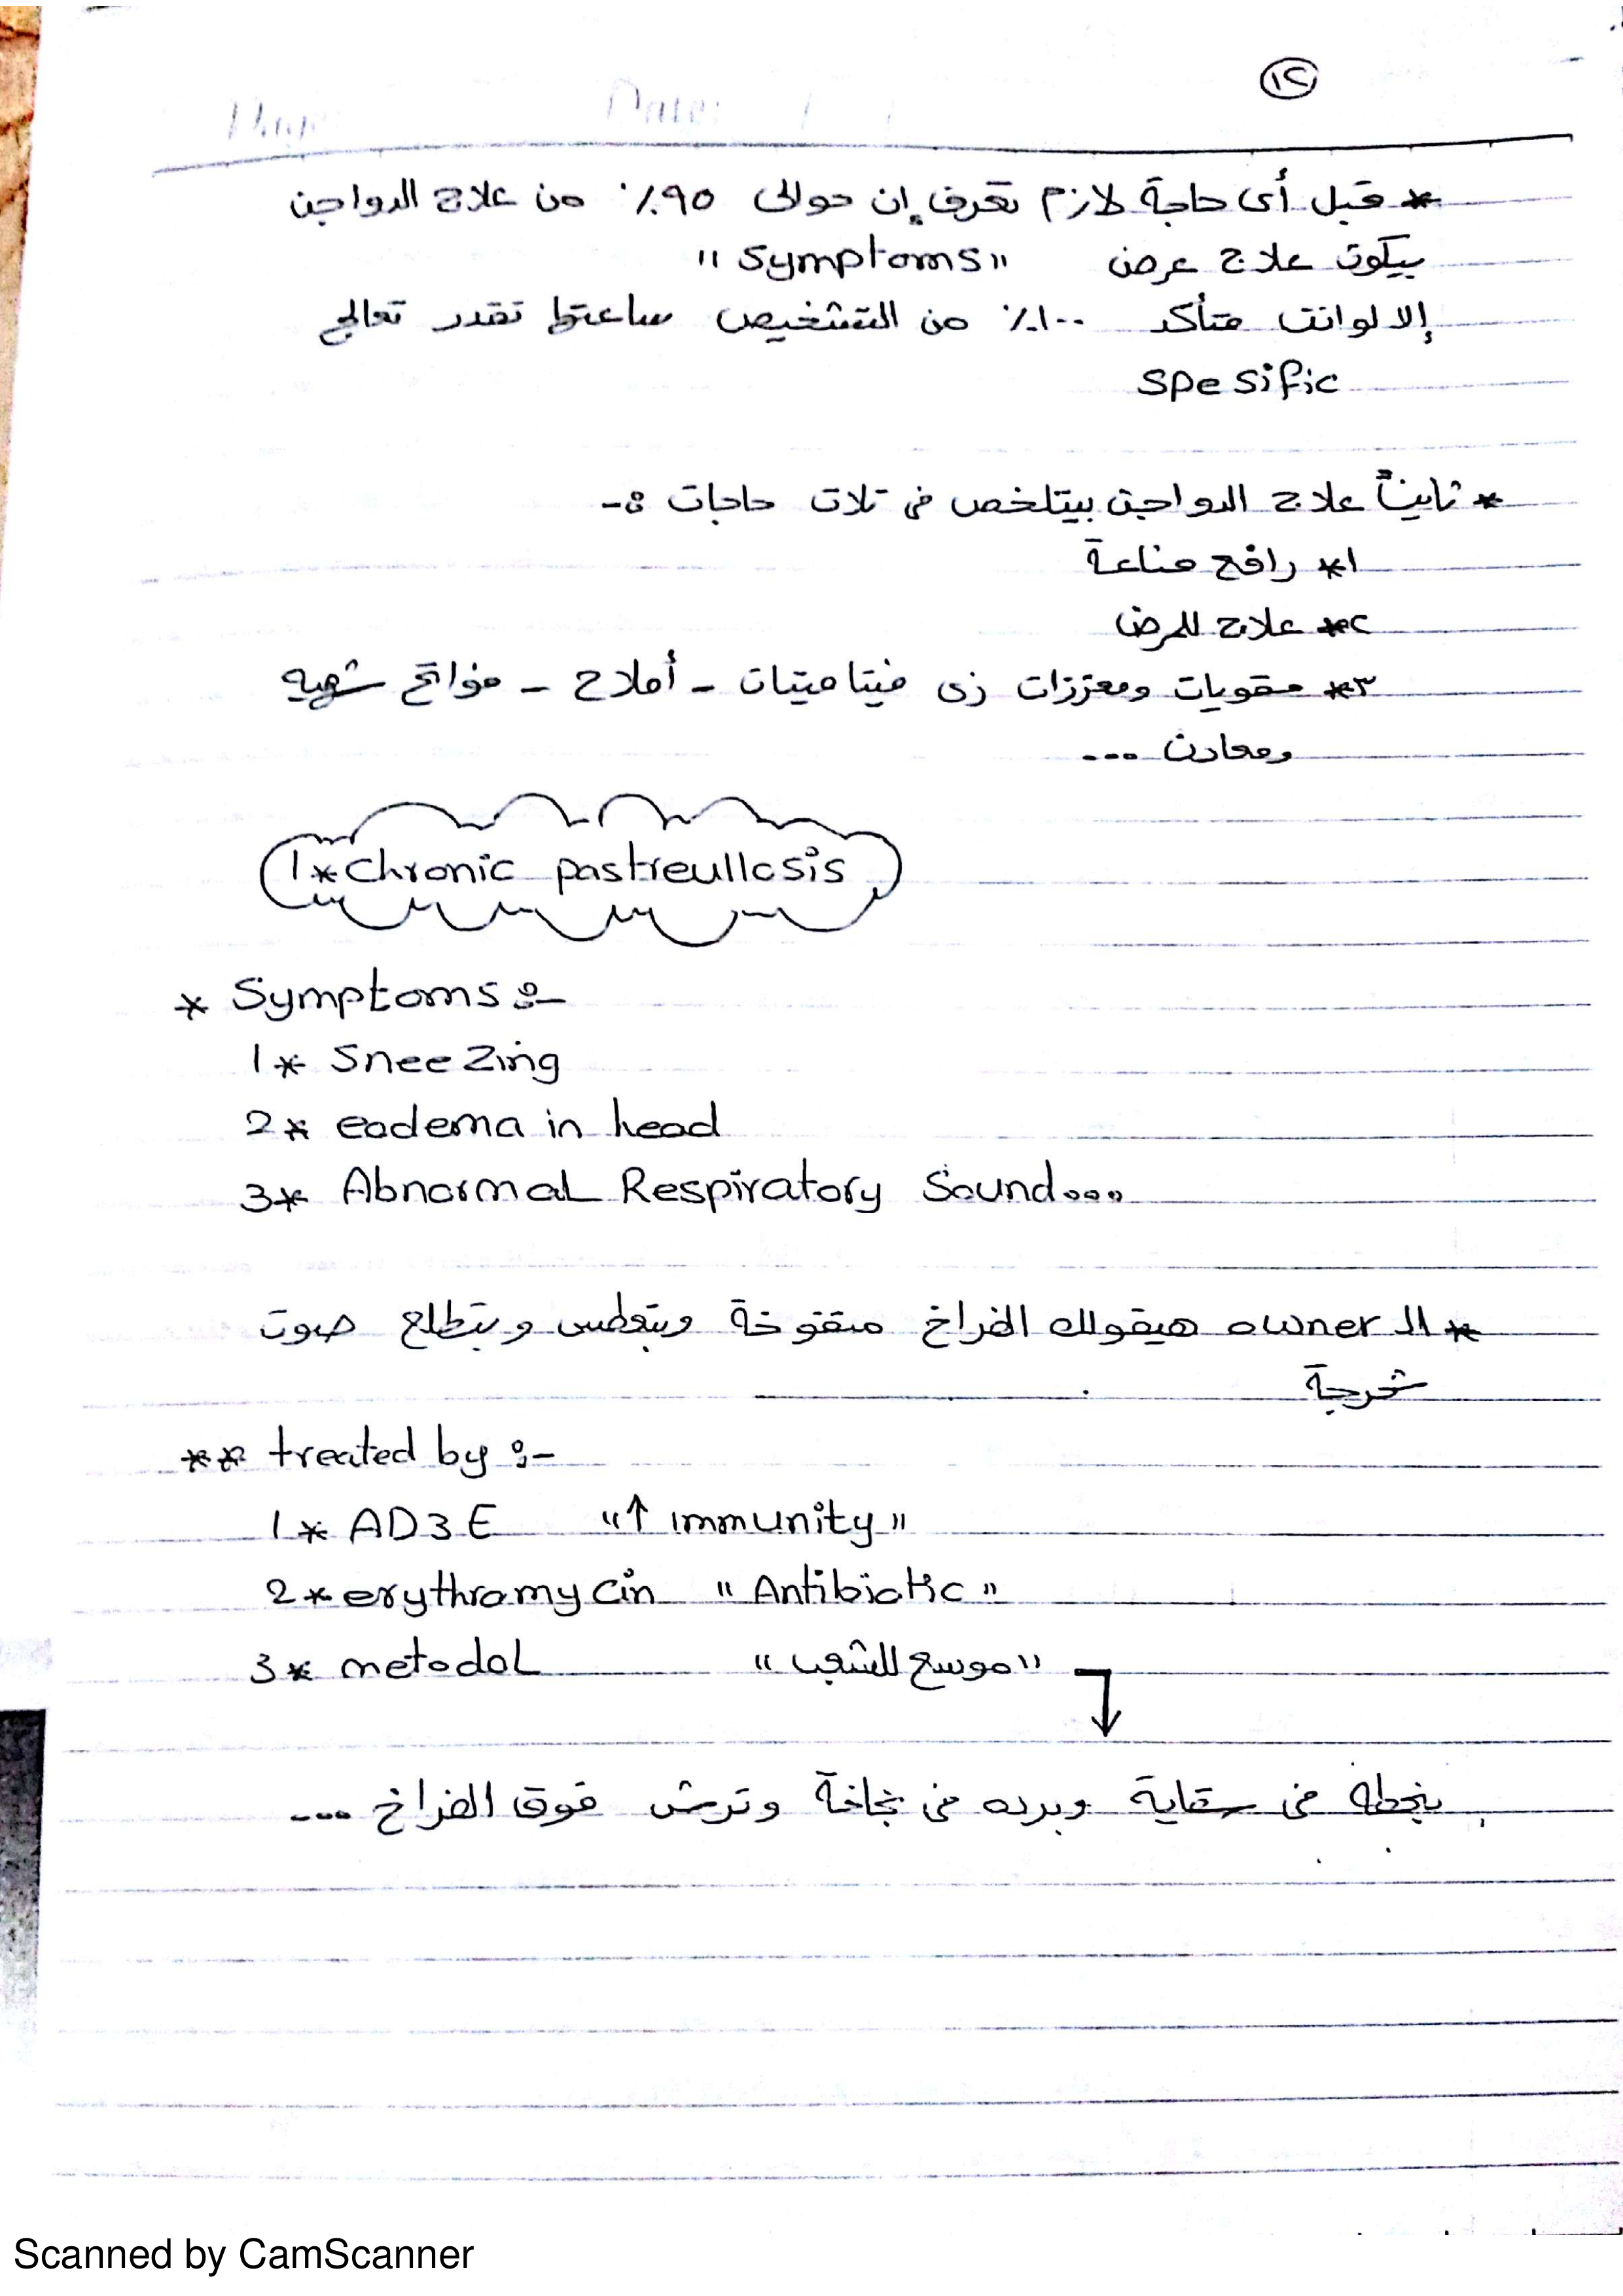 ١٢
Page Date: / /
* قبل أى حاجة لازم تعرف إن حوالى ٩٥٪ من علاج الدواجن
بيكون علاج عرض "symptoms"
إلا لو انت متأكد ١٠٠٪ من التشخيص ساعتها تقدر تعالج
spesific
* ثانياً علاج الدواجن بيتلخص فى تلات حاجات :-
١* رافع مناعة
٢* علاج للمرض
٣* مقويات ومعززات زى فيتامينات - أملاح - فواتح شهيه
ومعادن ...
1* chronic pastreullosis
* Symptoms :-
1* SneeZing
2* eodema in head
3* Abnormal Respiratory Sound...
* الـ owner هيقولك الفراخ منفوخة وبتعطس وبتطلع صوت
شخرجة
** treated by :-
1* AD3E "↑ immunity"
2* erythromycin "Antibiotic"
3* metodol "موسع للشعب"
بنحطه فى سقاية وبرده فى بخاخة وترش فوق الفراخ ...
Scanned by CamScanner